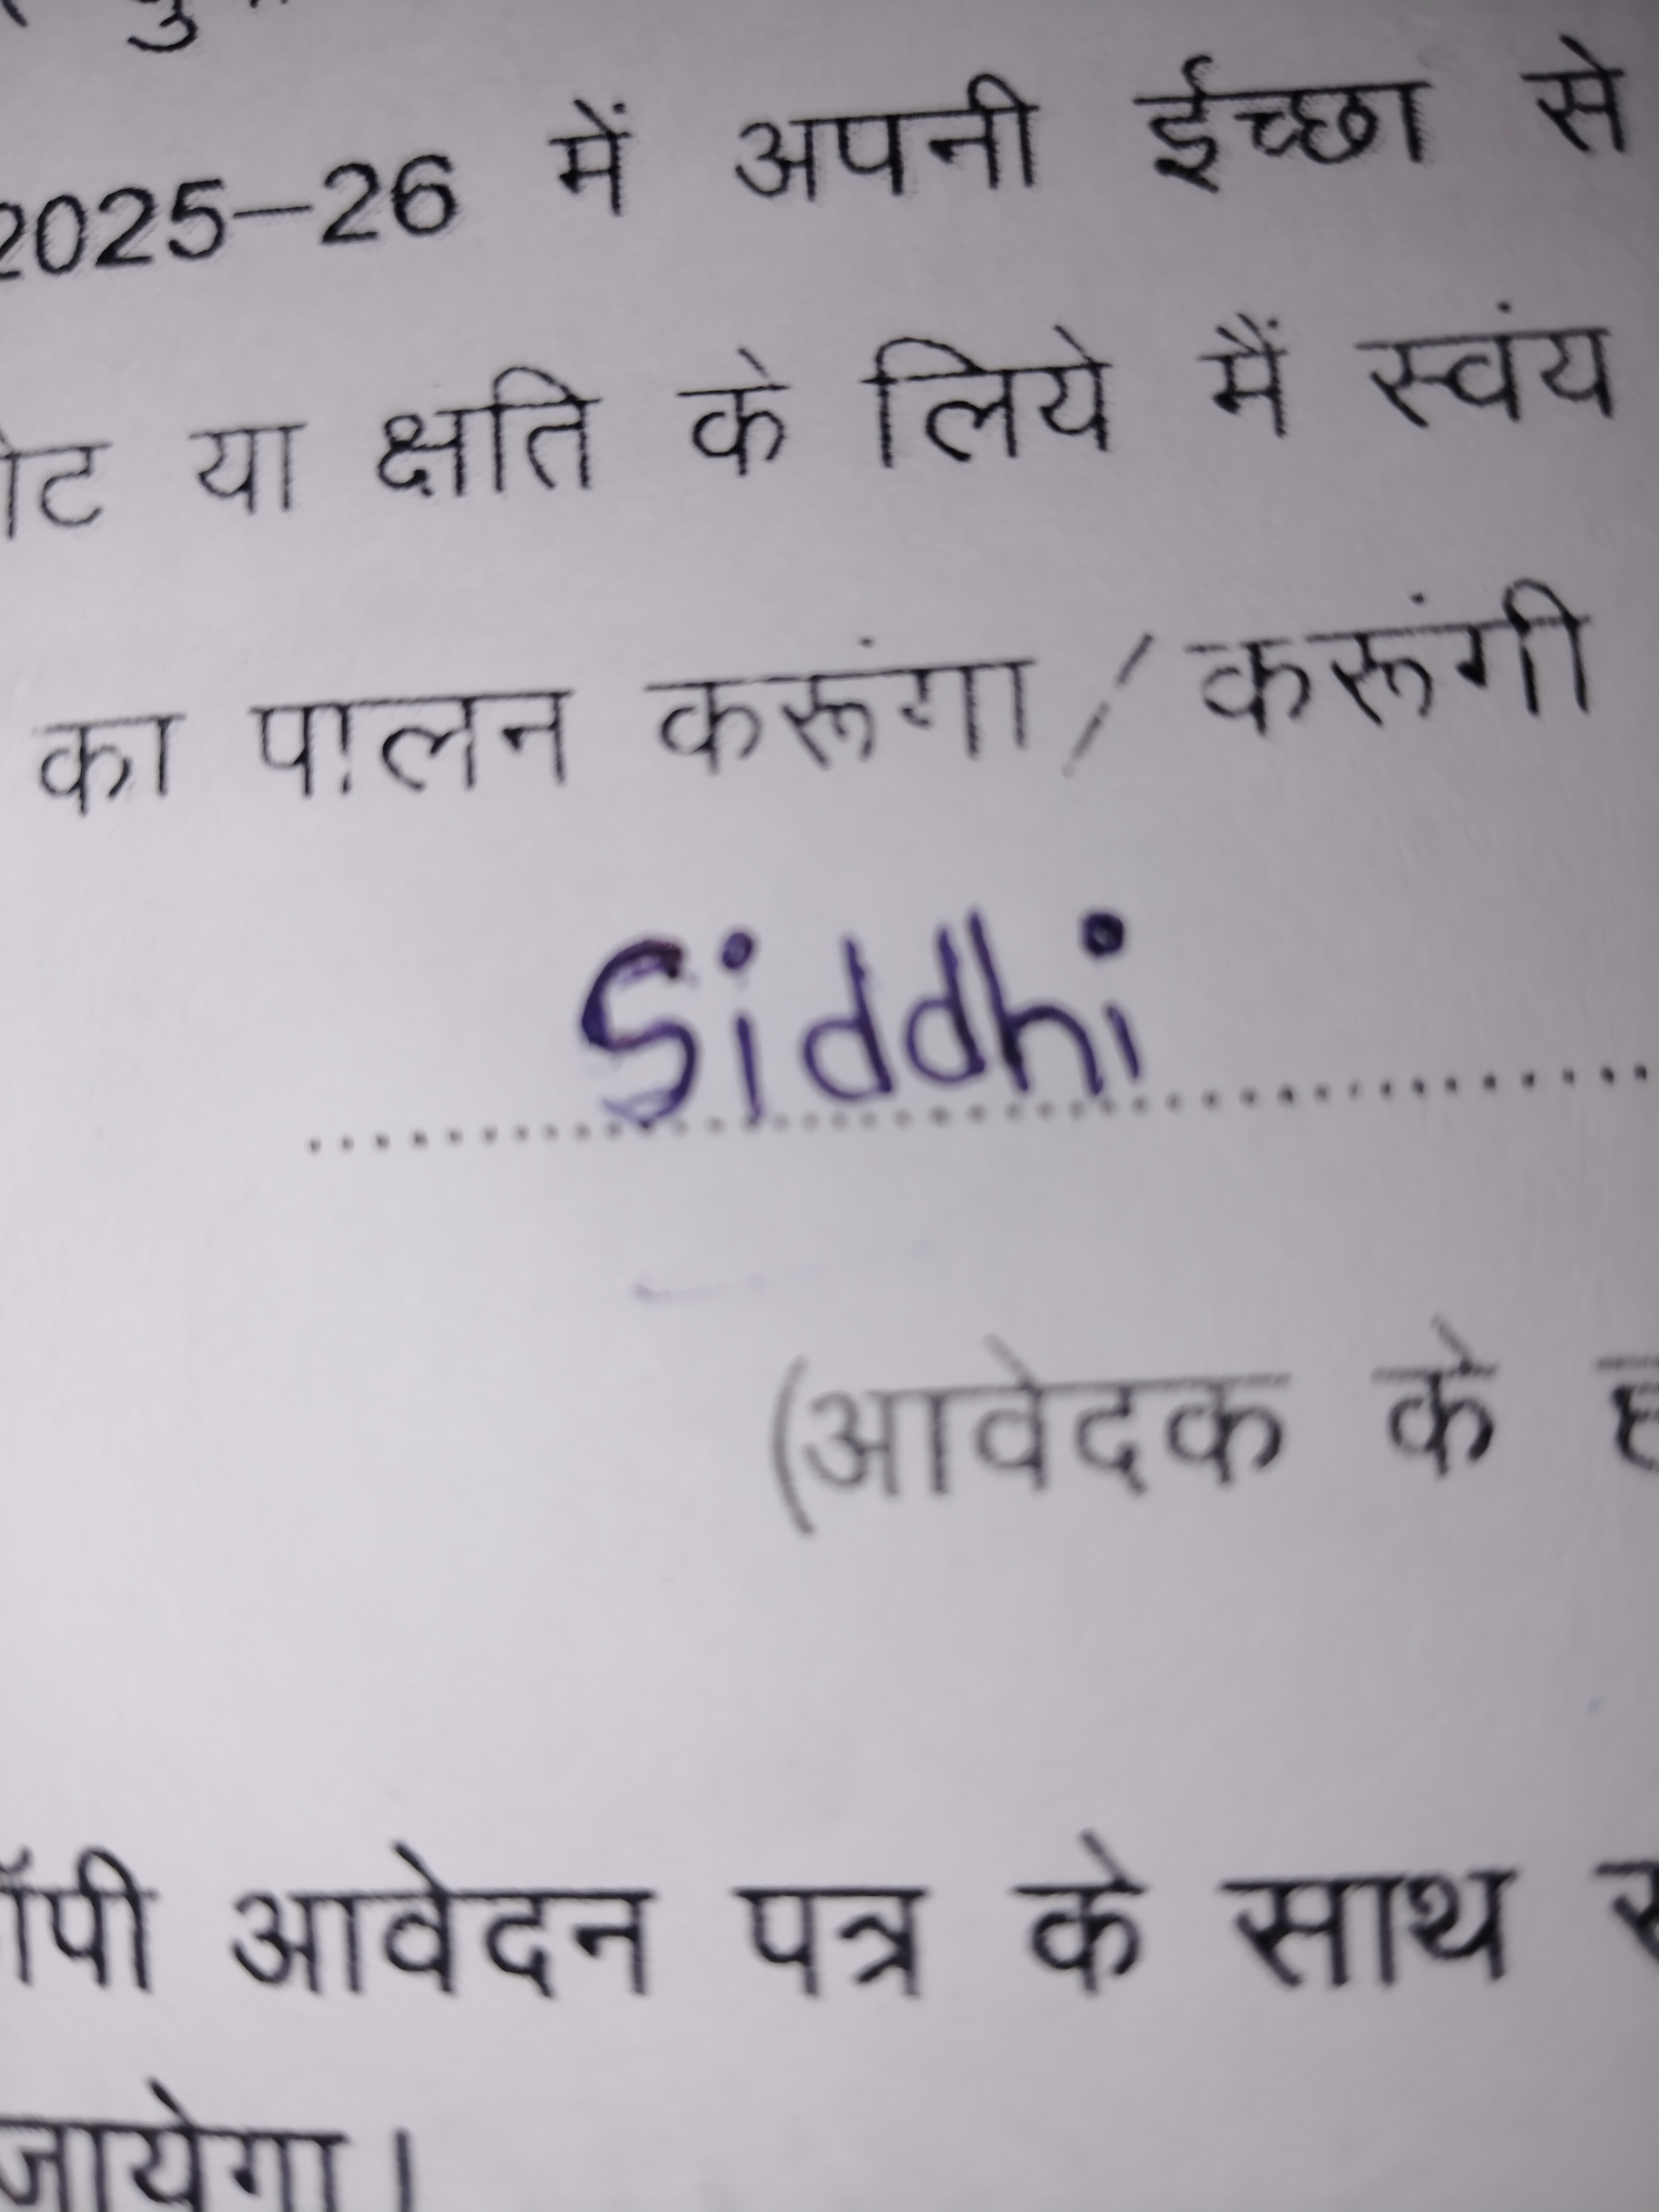 2025-26 में अपनी ईच्छा से
या क्षति के लिये मैं स्वंय
का पालन करूंगा / करूंगी
Siddhi
(आवेदक के
आवेदन पत्र के साथ
जायेगा।